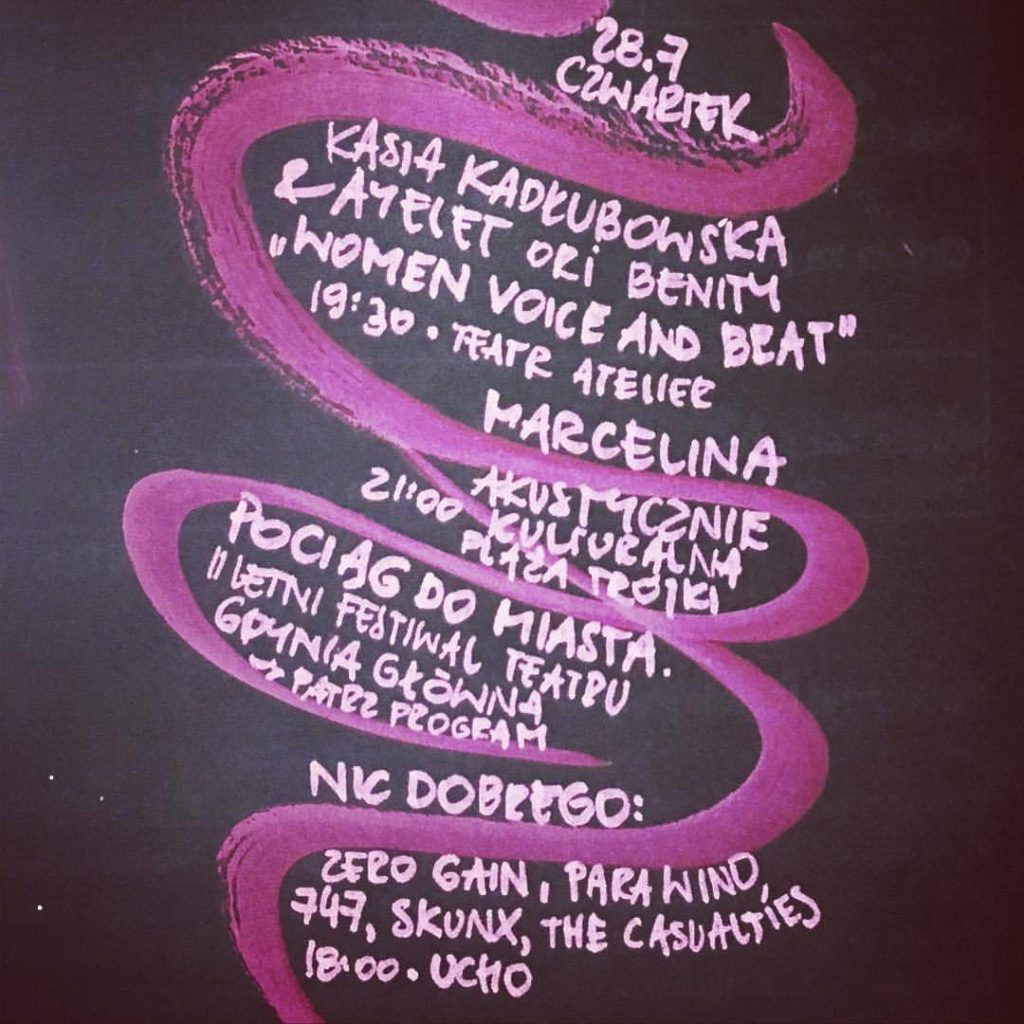 28.7
CZWARTEK
KASIA KADŁUBOWSKA
& AYELET ORI BENITY
„WOMEN VOICE AND BEAT"
19:30 • TEATR ATELIER
MARCELINA
AKUSTYCZNIE
21:00 KULTURALNA
PLAŻA TRÓJKI
POCIĄG DO MIASTA.
II LETNI FESTIWAL TEATRU
GDYNIA GŁÓWNA
PATRZ PROGRAM
NIC DOBREGO:
ZERO GAIN, PARA WINO,
747, SKUNX, THE CASUALTIES
18:00 • UCHO